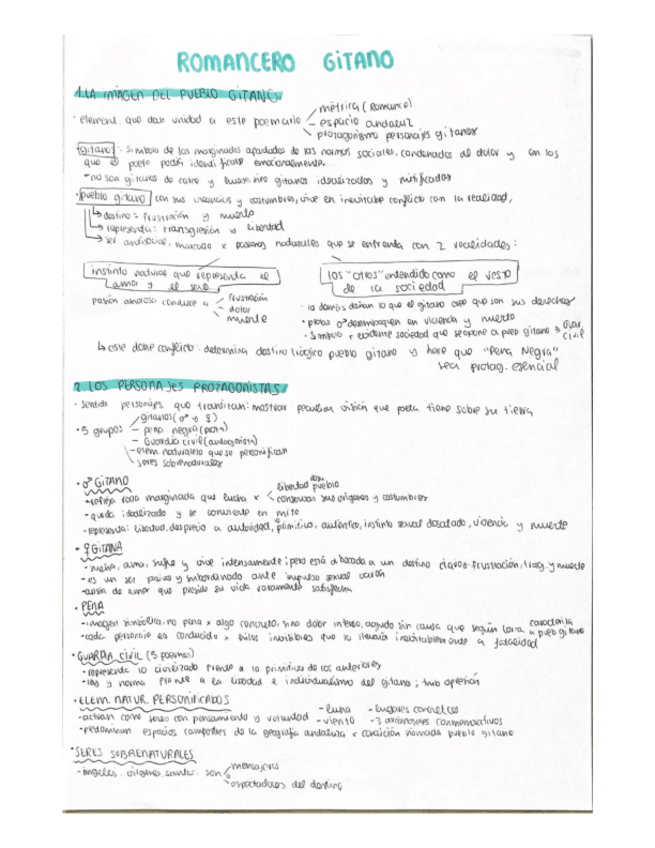 ROMANCERO GITANO
1. LA IMAGEN DEL PUEBLO GITANO
· element. que dan unidad a este poemario
métrica (Romance)
- espacio andaluz
protagonismo personajes gitanos
gitano: símbolo de los marginados apartados de las normas sociales, condenados al dolor y en los
que el poeta podía identificarse emocionalmente.
- no son gitanos de carne y hueso sino gitanos idealizados y mitificados
· pueblo gitano con sus creencias y costumbres, vive en inevitable conflicto con la realidad,
destino = frustración y muerte
representa: transgresión y libertad
ser antisocial, marcado x pasiones naturales que se enfrenta con 2 realidades:
instinto natural que representa el
amor y el sexo
pasión amorosa conduce a
frustración
dolor
muerte
los "otros" entendido como el resto
de la sociedad
· los demás dañan lo que el gitano cree que son sus derechos
desemboquen en violencia y muerte
sociedad que se opone a gitano → Guar
civil
↳ este doble conflicto: determina destino trágico pueblo gitano y hace que "Pena Negra"
sea protag. esencial
2. LOS PERSONAJES PROTAGONISTAS
· sentido personajes que transitan: mostrar peculiar visión que poeta tiene sobre su tierra
· 5 grupos
gitanos (♂ y ♀)
- pena negra
- Guardia civil (antagonista)
- elem naturales que se personifican
seres sobrenaturales
· ♂ GITANO
- refleja raza marginada que lucha x
libertad pueblo
conservar sus orígenes y costumbres
- queda idealizado y se convierte en mito
- representa: libertad, desprecio a autoridad, primitivo, auténtico, instinto sexual desatado, violencia y muerte
· ♀ GITANA
- sueña, ama, sufre y vive intensamente; pero está abocada a un destino frustración, trag. y muerte
- es un ser pasivo y subordinado ante impulso sexual varón
- ansia de amor que preside su vida raramente satisfecha
· PENA
- imagen simbólica, no pena x algo concreto, sino dolor intenso, agudo sin causa que según Lorca caracteriza
a pueb gitano
- cada personaje es conducido x hilos invisibles que lo llevaría inevitablemente a fatalidad
· GUARDIA CIVIL (3 poemas)
- representa lo civilizado frente a lo primitivo de los anteriores
- ley y norma frente a la libertad e individualismo del gitano; opresión
· ELEM NATUR PERSONIFICADOS
- actúan como seres con pensamiento y voluntad
- luna
- viento
- lugares concretos
- 3 conmemorativos
- predominan espacios campestres de la geografía andaluza x condición nómada pueblo gitano
· SERES SOBRENATURALES
- ángeles, vírgenes, santos: son
mensajeros
o
espectadores del destino